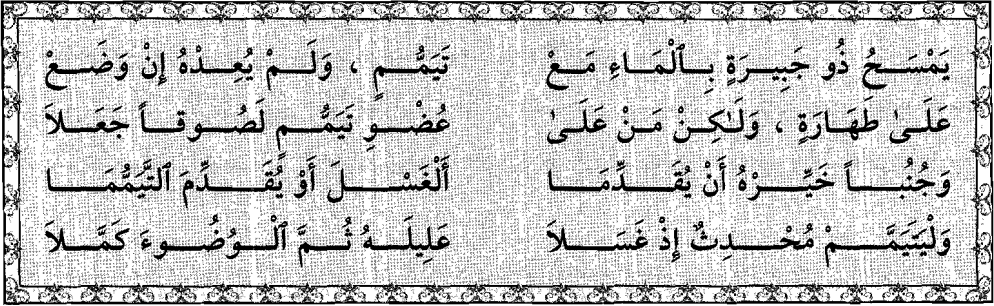 يَمْسَحُ ذُو جَبِيرَةٍ بِٱلْمَاءِ مَعْ تَيَمُّمٍ ، وَلَمْ يُعِدْهُ إِنْ وَضَعْ
عَلَىٰ طَهَارَةٍ ، وَلَٰكِنْ مَنْ عَلَىٰ عُضْوِ تَيَمُّمٍ لَصُوقاً جَعَلاَ
وَجُنُباً خَيِّرْهُ أَنْ يُقَدِّمَا أَلْغَسْلَ أَوْ يُقَدِّمَ ٱلتَّيَمُّمَا
وَلْيَتَيَمَّمْ مُحْدِثٌ إِذْ غَسَلاَ عَلِيلَهُ ثُمَّ ٱلْوُضُوءَ كَمَّلاَ